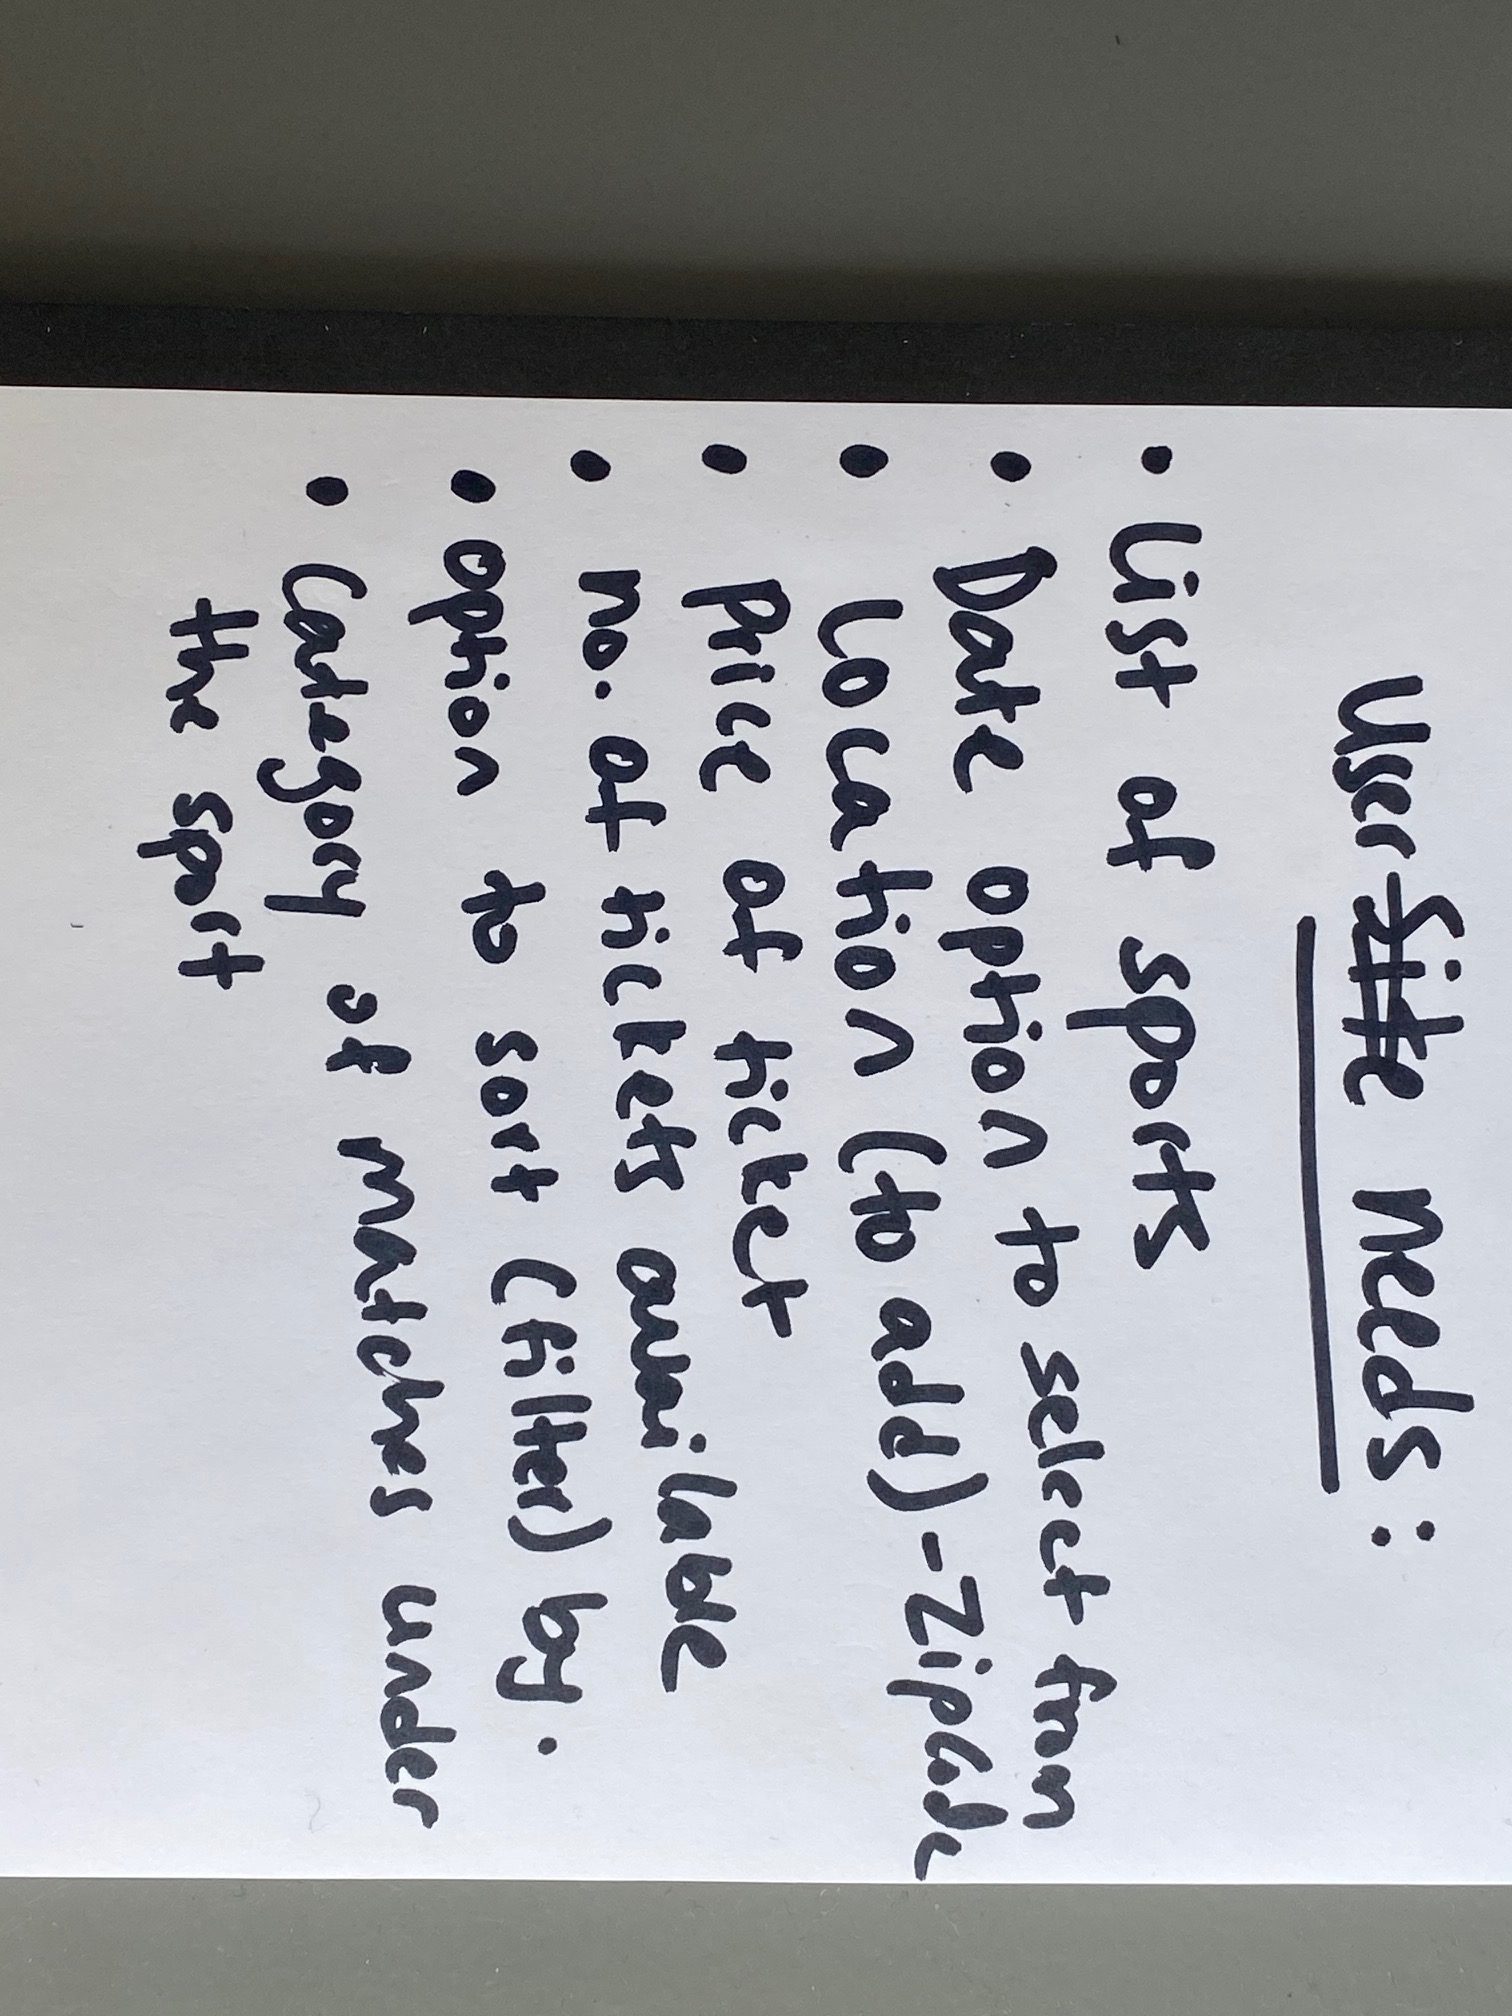 User Site needs:
• List of sports
• Date option to select from
• Location (to add) - Zipcode
• Price of ticket
• no. of tickets available
• option to sort (filter) by.
• Category of matches under
the sport